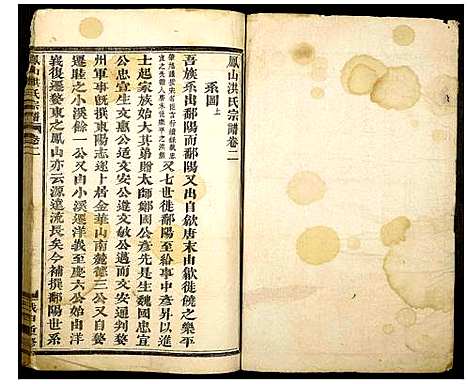 鳳山洪氏宗譜卷二
系圖上
吾族系出鄱陽鄱陽又出自歙唐末由歙徙饒之樂平
又七世徙鄱陽至給事中彥昇以進
士起家族始大其弟贈太師鄭國公彥先是生魏國忠宣
公忠宣生文惠公适文安公遵文敏公邁而文安通判婺
州軍事既撰東陽志遂卜居金華山南麓德三公又自婺
遷睦之小溪餘一公又由小溪遷洋義至慶六公始由洋
義復遷婺東之鳳山亦云源遠流長矣今補撰鄱陽世系
鳳山洪氏宗譜 卷二